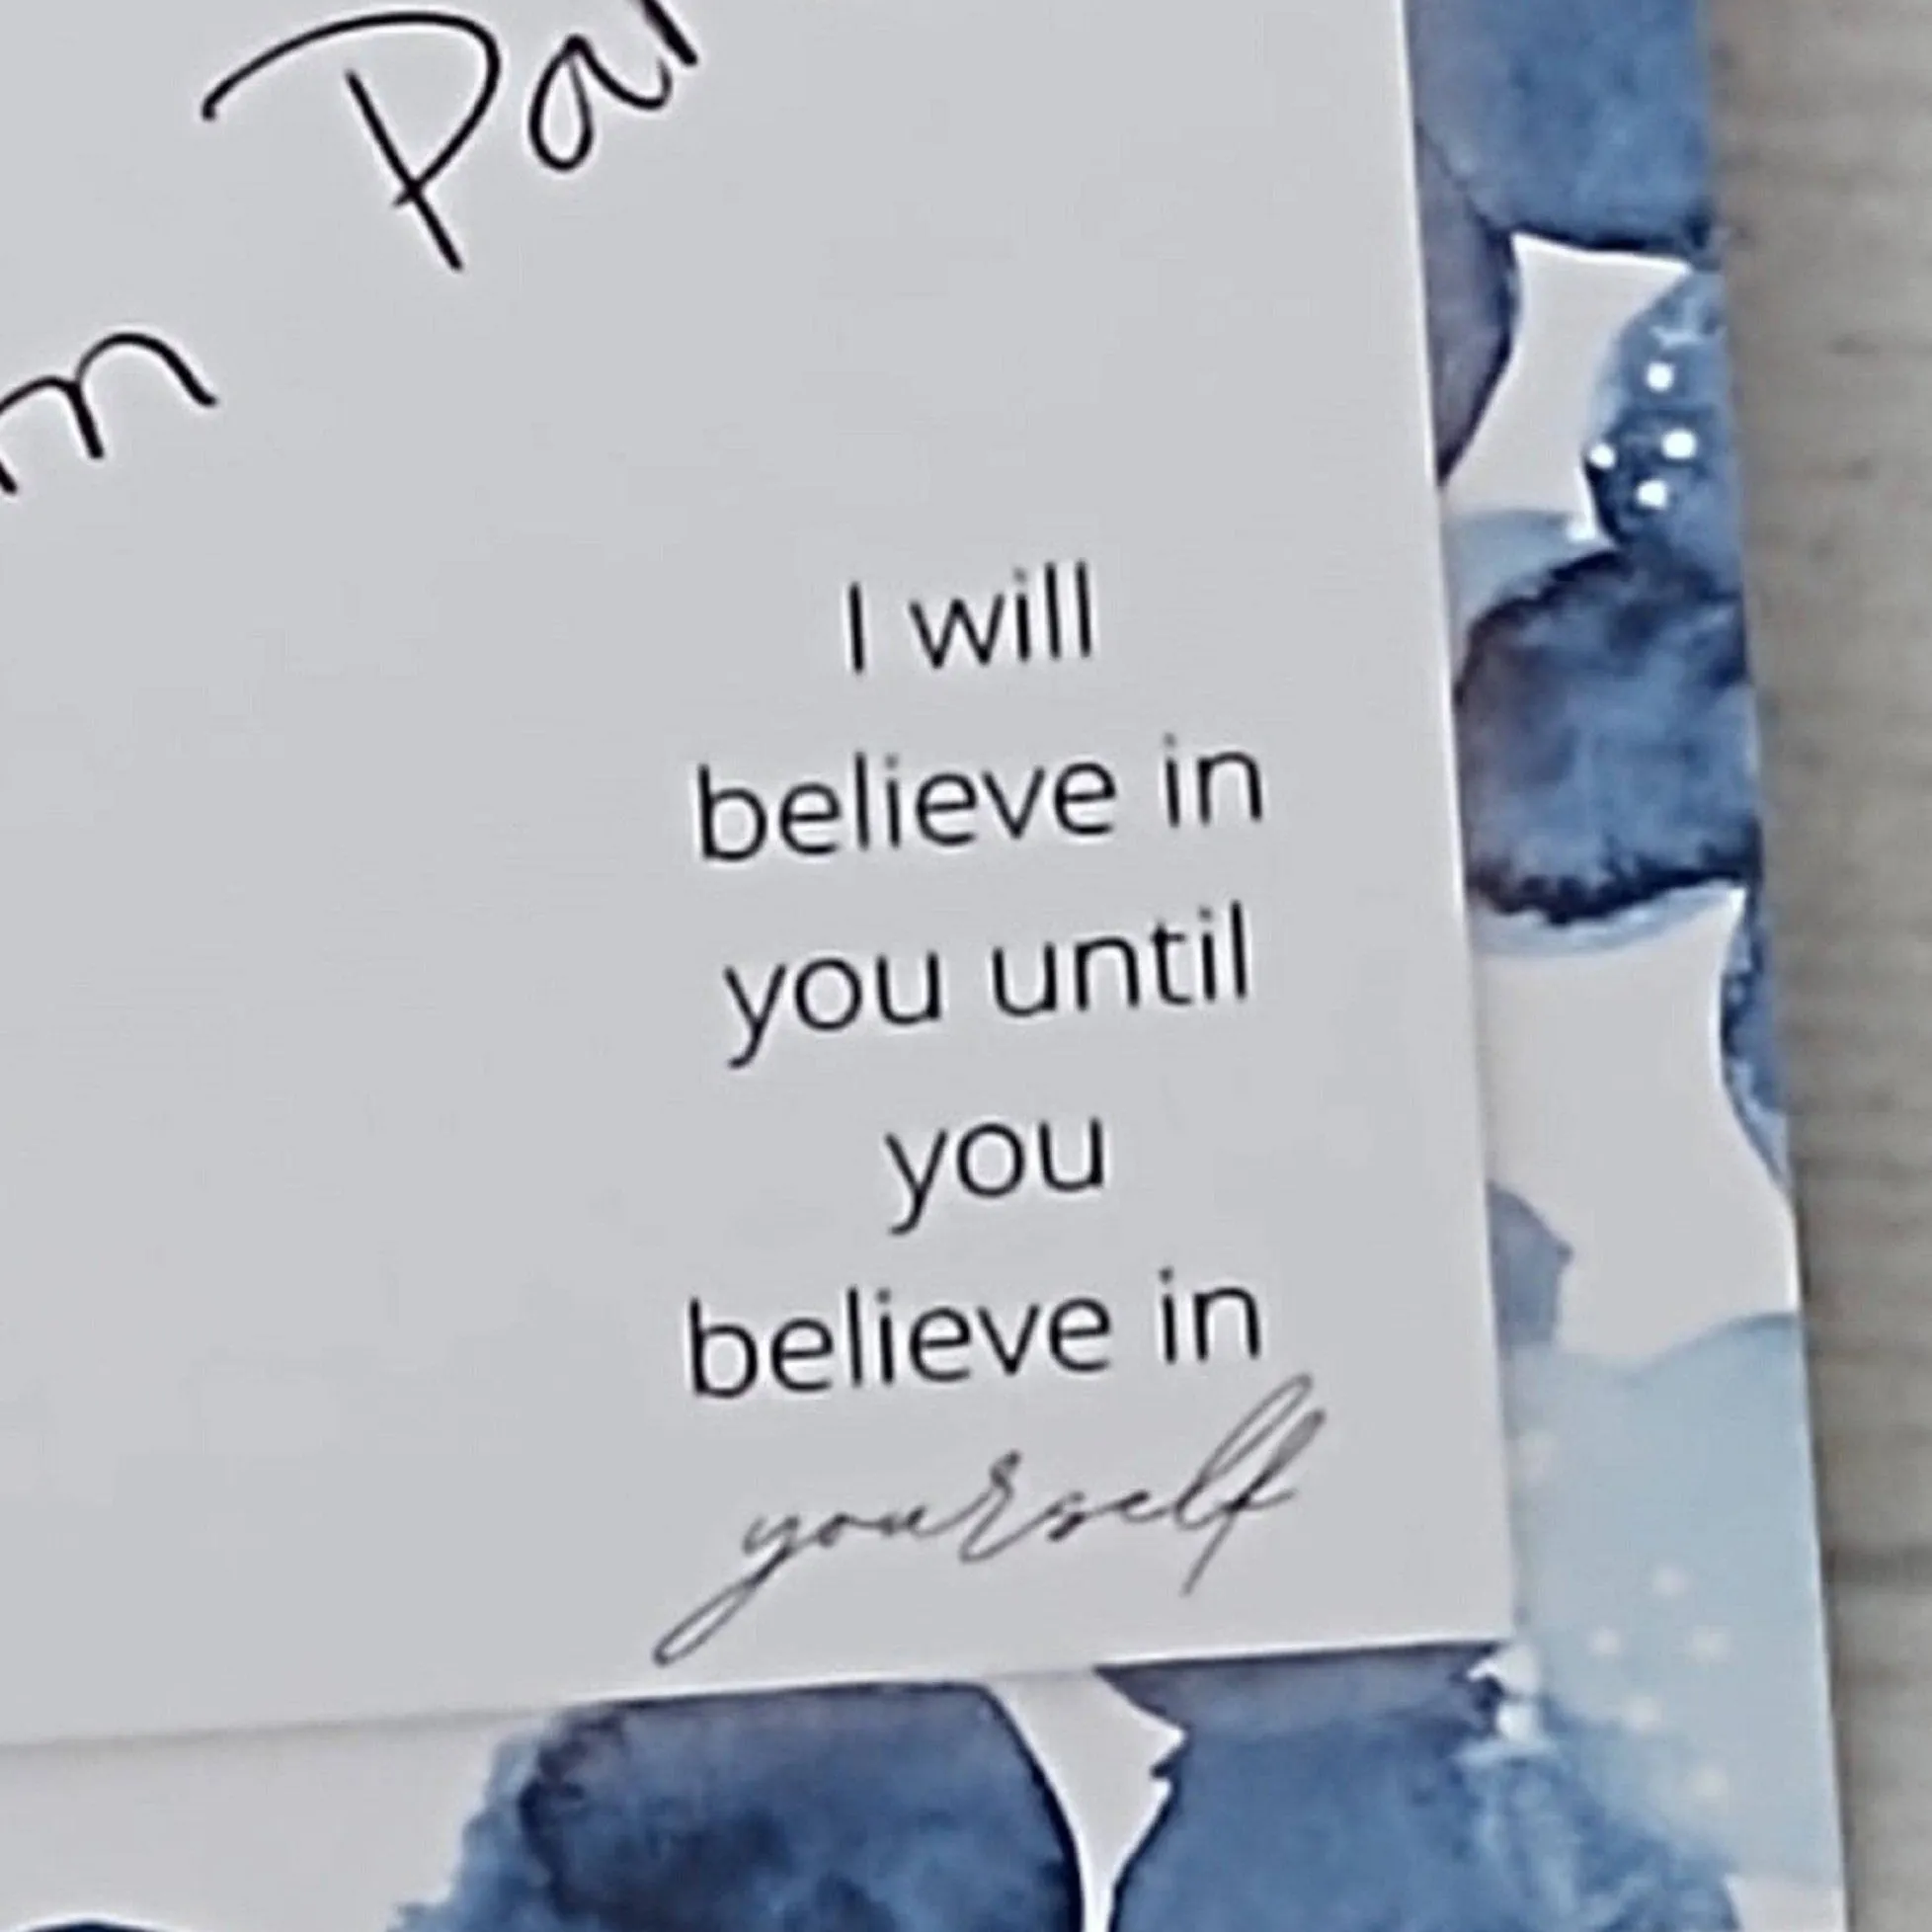 I will
believe in
you until
you
believe in
yourself